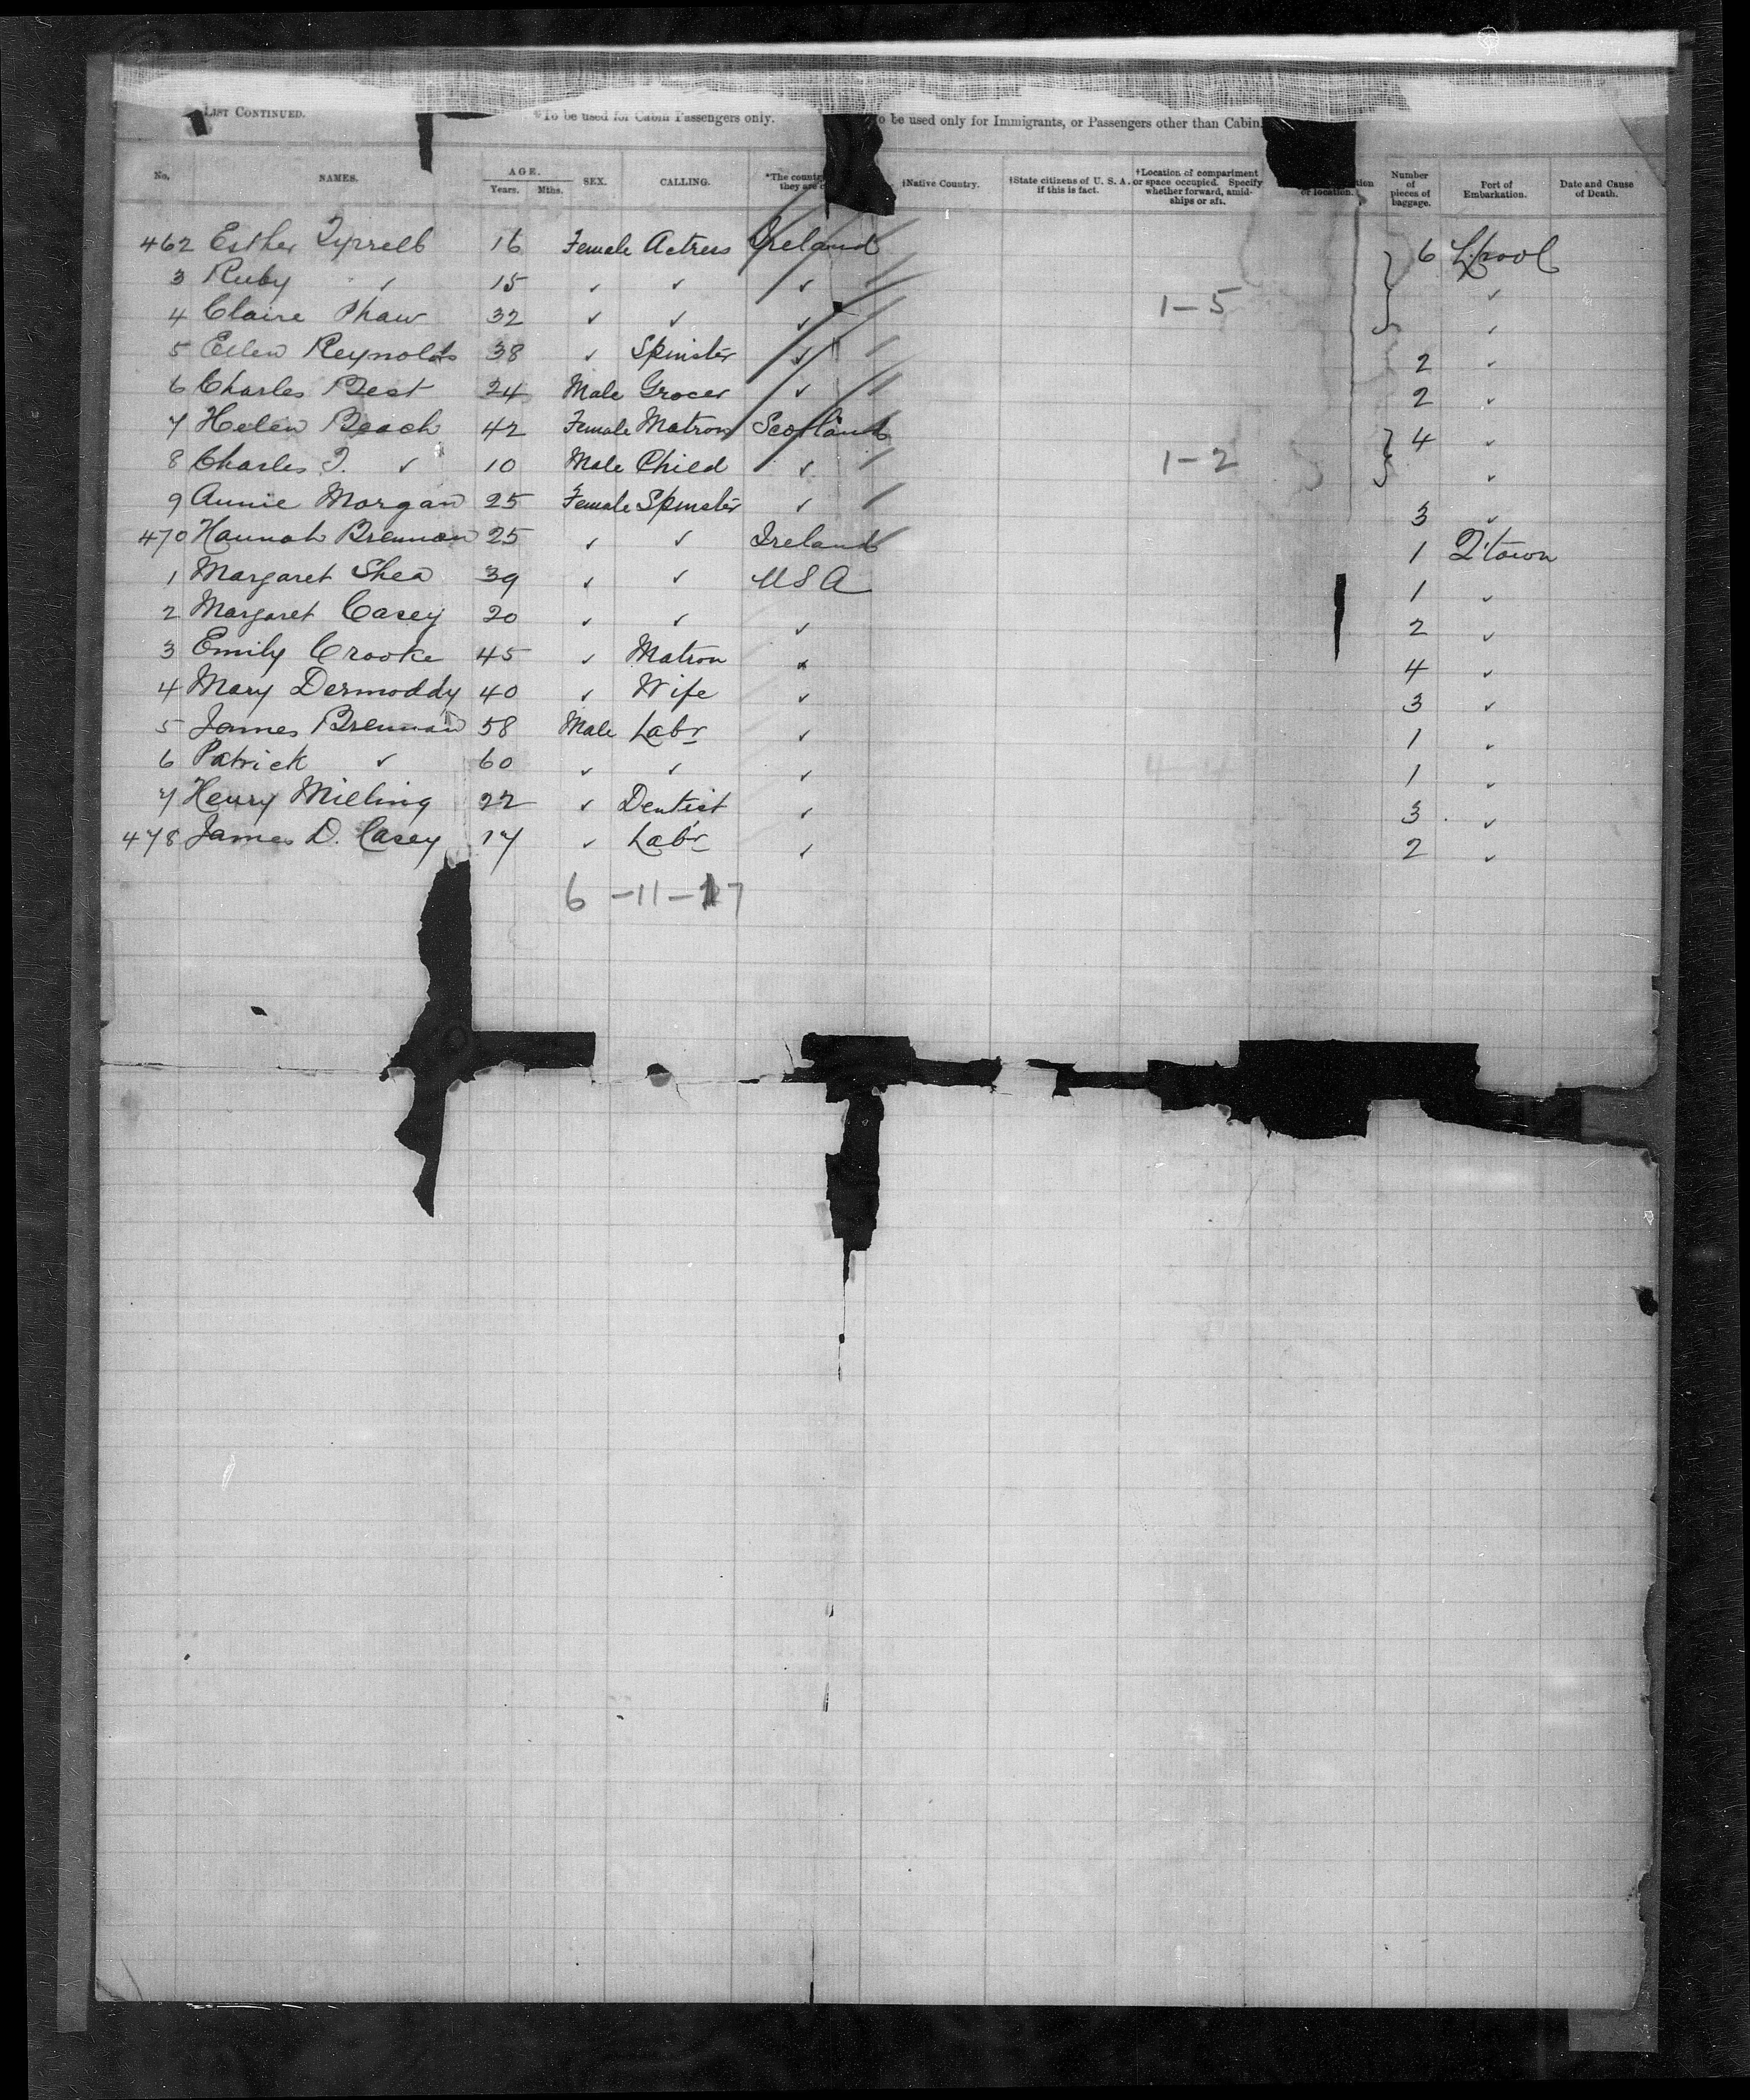 LIST CONTINUED. *To be used for Cabin Passengers only. o be used only for Immigrants, or Passengers other than Cabin.
No. NAMES. AGE. Years. Mths. SEX. CALLING. *The countr they are c †Native Country. †State citizens of U. S. A. if this is fact. †Location of compartment or space occupied. Specify whether forward, amid-ships or aft. or location. Number of pieces of baggage. Port of Embarkation. Date and Cause of Death.
462 Esther Tyrrell 16 Female Actress Ireland 6 L'pool
3 Ruby ✓ 15 ✓ ✓ ✓ ✓
1-5
4 Claire Shaw 32 ✓ ✓ ✓ ✓
5 Ellen Reynolds 38 ✓ Spinster ✓ 2 ✓
6 Charles Best 24 Male Grocer ✓ 2 ✓
7 Helen Beach 42 Female Matron Scotland 4 ✓
8 Charles J. ✓ 10 Male Child ✓ 1-2 ✓
9 Annie Morgan 25 Female Spinster ✓ 3 ✓
470 Hannah Brennan 25 ✓ ✓ Ireland 1 Q'town
1 Margaret Shea 39 ✓ ✓ USA 1 ✓
2 Margaret Casey 20 ✓ ✓ ✓ 2 ✓
3 Emily Crooke 45 ✓ Matron ✓ 4 ✓
4 Mary Dermoddy 40 ✓ Wife ✓ 3 ✓
5 James Brennan 58 Male Labr ✓ 1 ✓
6 Patrick ✓ 60 ✓ ✓ ✓ 1 ✓
7 Henry Mieling 22 ✓ Dentist ✓ 3 ✓
478 James D. Casey 17 ✓ Labr ✓ 2 ✓
6-11-17